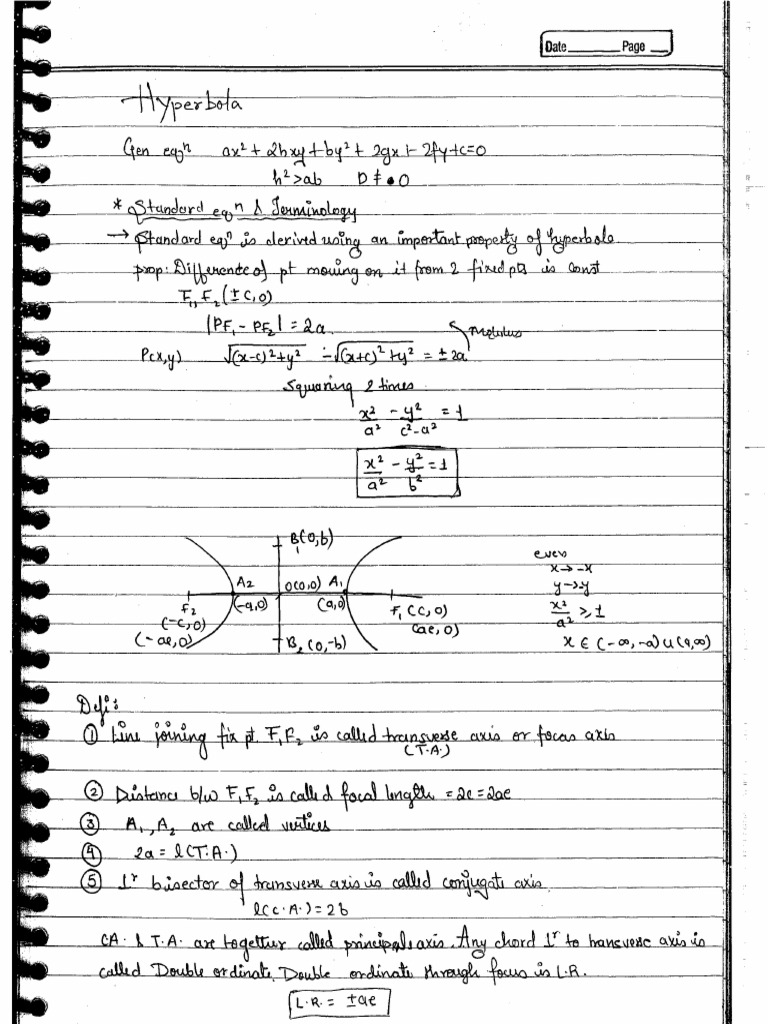 Date Page
Hyperbola
Gen eqⁿ ax² + 2hxy + by² + 2gx + 2fy + c = 0
h² > ab D ≠ 0
* Standard eqⁿ & Terminology
→ Standard eqⁿ is derived using an important property of hyperbola.
prop: Difference of pt moving on it from 2 fixed pts is const
F₁, F₂ (±c, 0)
|PF₁ - PF₂| = 2a
Modulus
P(x,y) √(x-c)²+y² - √(x+c)²+y² = ±2a
Squaring 2 times
x²/a² - y²/c²-a² = 1
x²/a² - y²/b² = 1
B₁(0,b)
even
x → -x
A₂ O(0,0) A₁
y → y
F₂ (-a,0) (a,0) F₁ (c,0)
x²/a² ≥ 1
(-c,0) (ae,0)
(-ae,0) B₂ (0,-b) x ∈ (-∞,-a) ∪ (a,∞)
Defi:
① Line joining fix pt. F₁F₂ is called transverse axis or focus axis
(T.A.)
② Distance b/w F₁F₂ is called focal length = 2c = 2ae
③ A₁, A₂ are called vertices
④ 2a = l(T.A.)
⑤ ⊥ʳ bisector of transverse axis is called conjugate axis.
l(C.A.) = 2b
CA. & T.A. are together called principle axis. Any chord ⊥ʳ to transverse axis is
called Double ordinate. Double ordinate through focus is L.R.
L.R. = ±ae